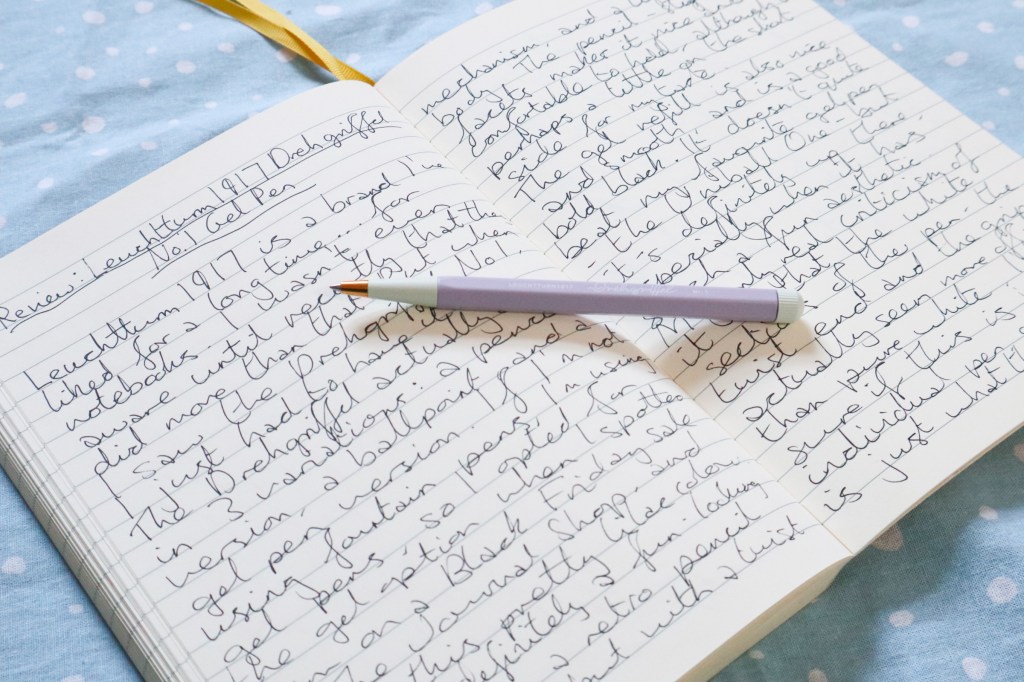 Review: Leuchtturm 1917 Drehgriffel
No.1 Gel Pen
Leuchtturm 1917 is a brand I've
liked for a long time... for
notebooks. I wasn't even
aware until recently that the
did more than that. But when
I saw the Drehgriffel No1
I just had to have it.
The Drehgriffel actually
in 3 variations: a pencil
version, a ballpoint and a
gel pen version. If I'm not
using fountain pens, I'm using
gel pens, so I opted for
the gel option when I spotted
on a Black Friday sale
The Journal Shop and
this lovely lilac colour.
definitely a fun looking
a retro pencil
but with a twist
mechanism, and a
body. The pencil-
facets makes it nice
comfortable to hold, although
perhaps a little on the short
side for my taste.
The gel refill is also nice
and smooth and is a good
bold black. It doesn't quite
beat my favourite gel pen
- the uniball One - but
it's definitely up there
especially when it has
such a fun aesthetic
only real criticism of
it is that the white
section of the pen, the
twist end and the grip
actually seem more off
than pure white. I
sure if this is
individual pen
is just what